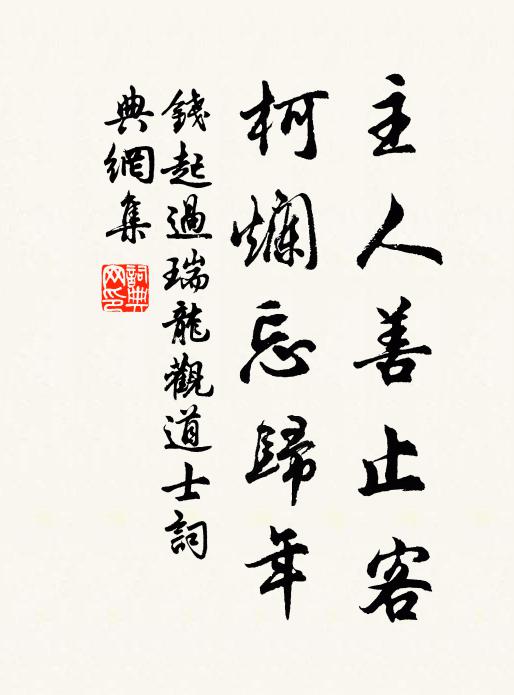 主人善止客
柯爛忘歸年
錢起過瑞龍觀道士詞
典網集
詞典
网印